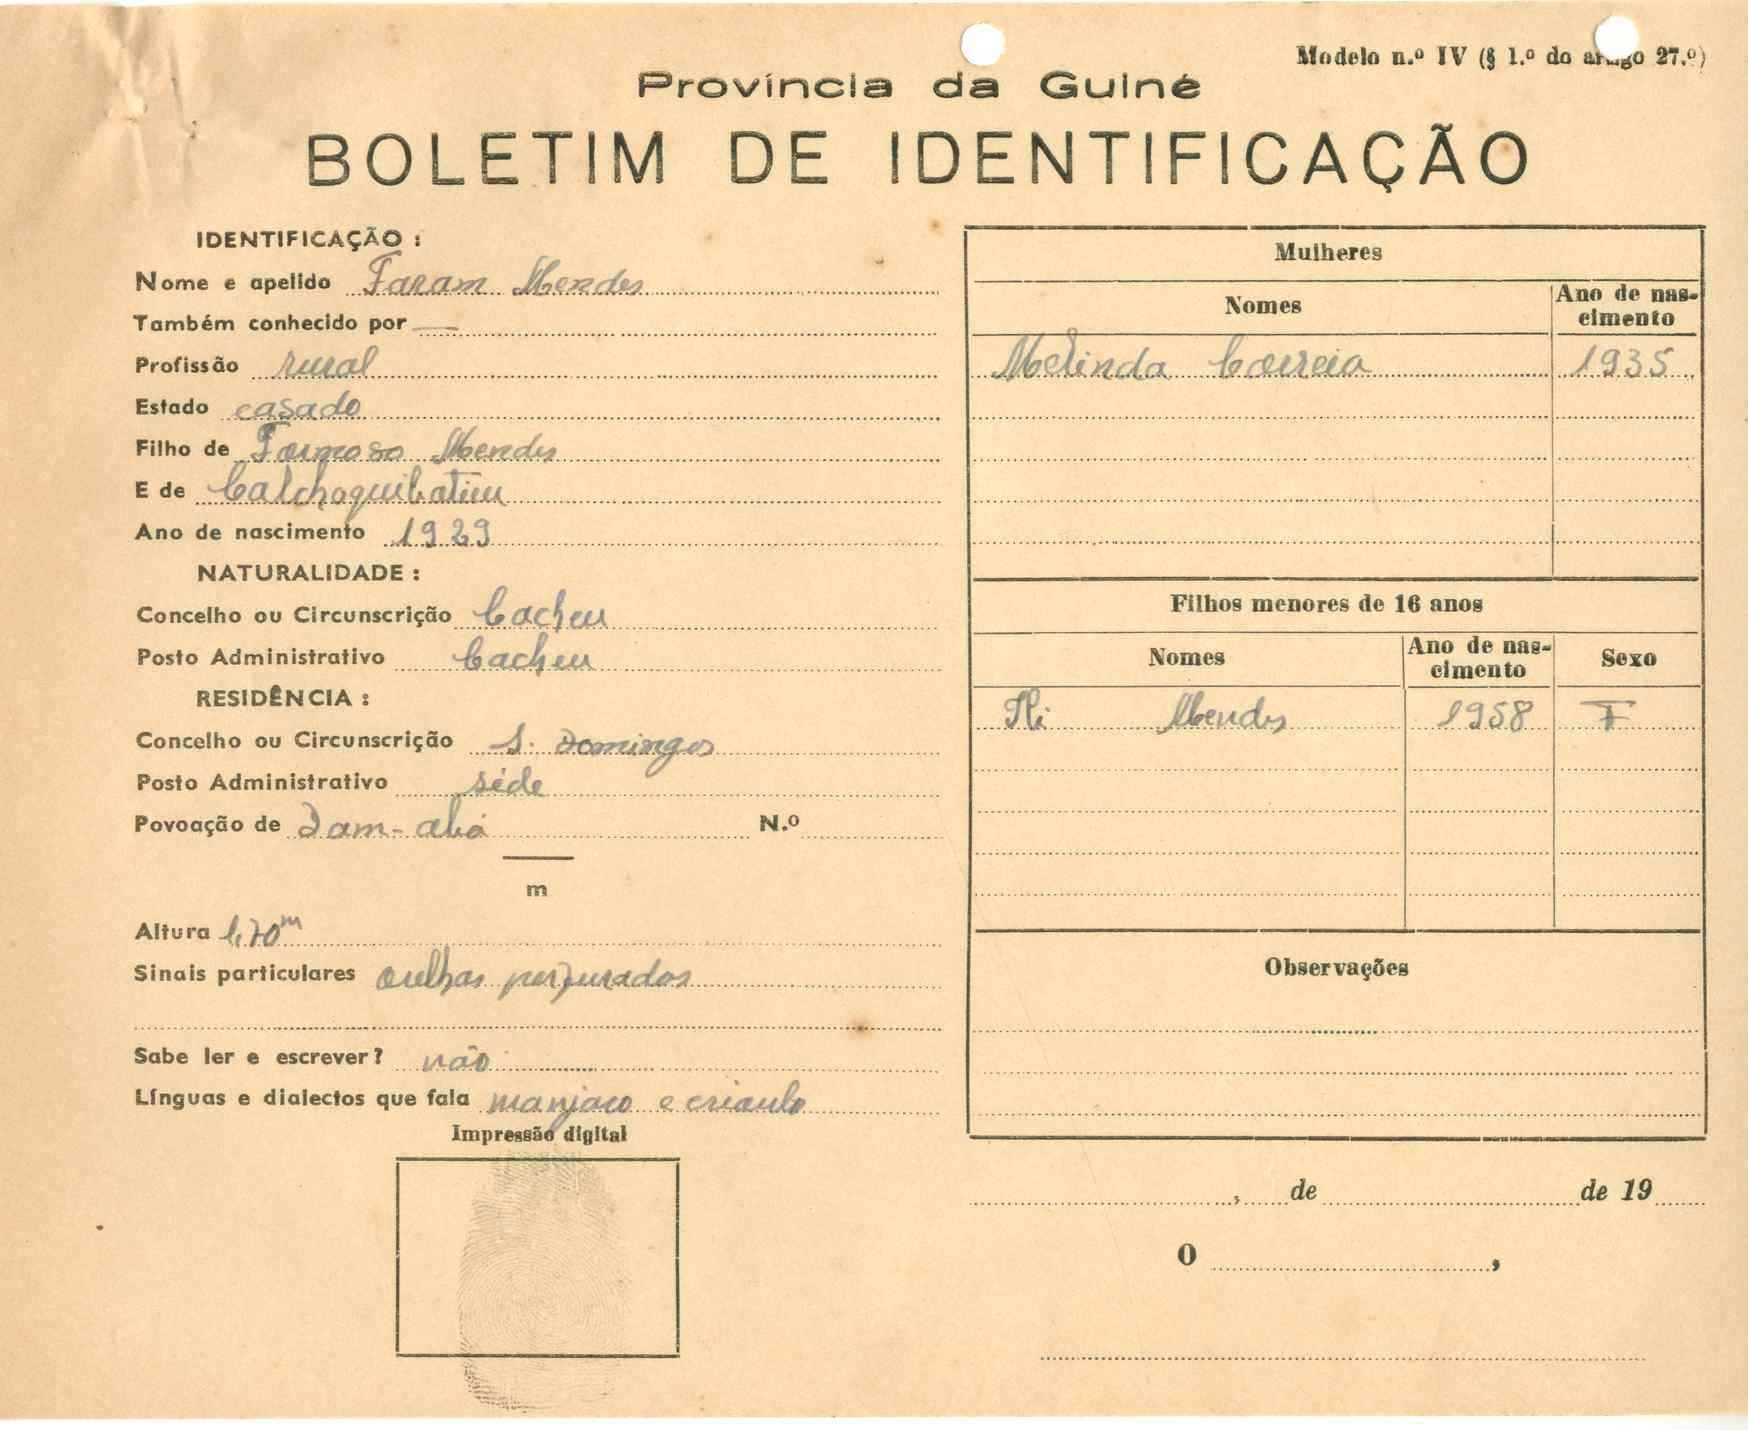 Modelo n.º IV (§ 1.º do artigo 27.º)
Província da Guiné
BOLETIM DE IDENTIFICAÇÃO
IDENTIFICAÇÃO :
Nome e apelido Faram Mendes
Também conhecido por —
Profissão rural
Estado casado
Filho de Formoso Mendes
E de
Ano de nascimento 1929
NATURALIDADE :
Concelho ou Circunscrição Cacheu
Posto Administrativo Cacheu
RESIDÊNCIA :
Concelho ou Circunscrição S. Domingos
Posto Administrativo séde
Povoação de N.º
m
Altura 1,70 m
Sinais particulares orelhas perfurados
Sabe ler e escrever? não
Línguas e dialectos que fala manjaco e crioulo
Impressão digital
Mulheres
Nomes Ano de nas-
cimento
Melinda Correia 1935
Filhos menores de 16 anos
Nomes Ano de nas-
cimento Sexo
Mendes 1958 F
Observações
, de de 19
O ,